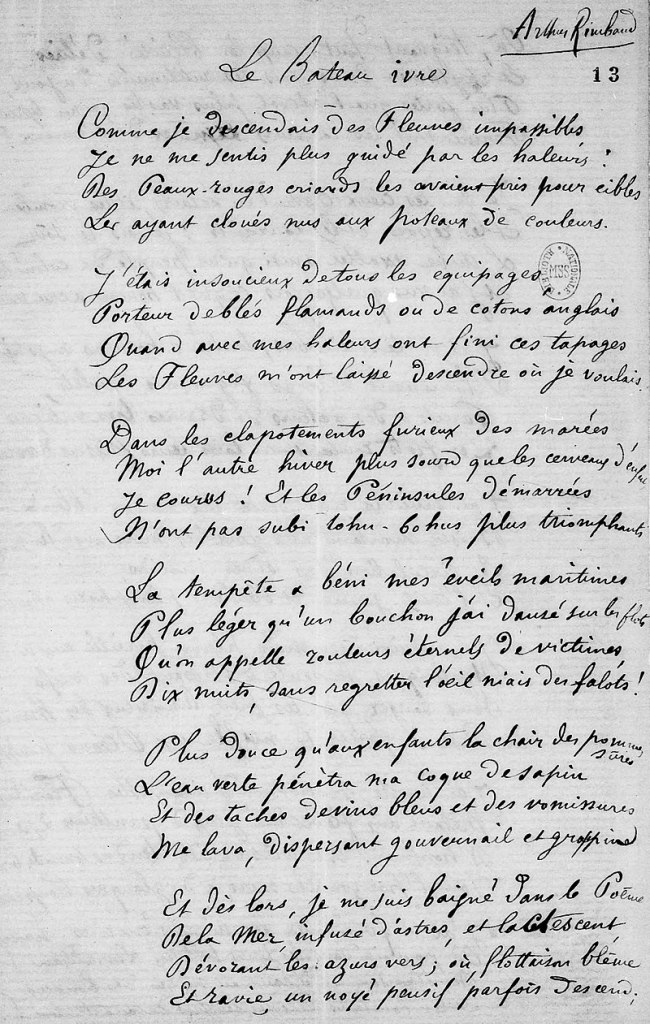 Arthur Rimbaud
13
Le Bateau ivre
Comme je descendais des Fleuves impassibles
Je ne me sentis plus guidé par les haleurs :
Des Peaux-rouges criards les avaient pris pour cibles
Les ayant cloués nus aux poteaux de couleurs.
J'étais insoucieux de tous les équipages,
Porteur de blés flamands ou de cotons anglais
Quand avec mes haleurs ont fini ces tapages
Les Fleuves m'ont laissé descendre où je voulais.
BIBLIOTH. NATIONALE MSS
Dans les clapotements furieux des marées
Moi l'autre hiver plus sourd que les cerveaux d'enfants
Je courus ! Et les Péninsules démarrées
N'ont pas subi tohu-bohus plus triomphants
La tempête a béni mes éveils maritimes
Plus léger qu'un bouchon j'ai dansé sur les flots
Qu'on appelle rouleurs éternels de victimes,
Dix nuits, sans regretter l'œil niais des falots !
Plus douce qu'aux enfants la chair des pommes sûres
L'eau verte pénétra ma coque de sapin
Et des taches de vins bleus et des vomissures
Me lava, dispersant gouvernail et grappin
Et dès lors, je me suis baigné dans le Poème
De la Mer, infusé d'astres, et latescent
Dévorant les azurs vers ; où flottaison blême
Et ravie un noyé pensif parfois descend ;